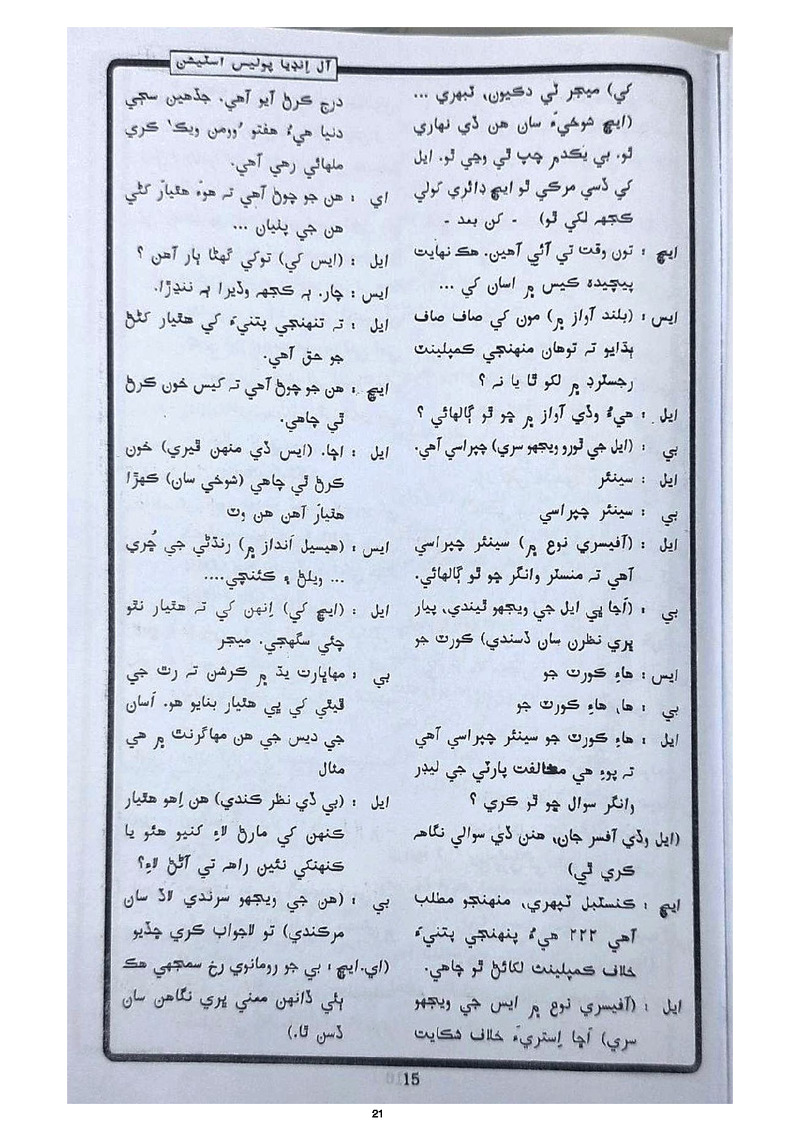 آل اِنڊيا پوليس اسٽيشن
کي) ميجر ٿي ڊڪيون، ٽپهري ...
(ايڇ شوخيءَ سان هن ڏي نهاري
ٿو. بي يَڪدم چپ ٿي وڃي ٿو. ايل
کي ڏسي مرڪي ٿو ايڇ ڊائري کولي
ڪجهه لکي ٿو) - کن بعد -
ايڇ : تون وقت تي آئي آهين. هڪ نهايت
پيچيده ڪيس ۾ اسان کي ...
ايس : (بلند آواز ۾) مون کي صاف صاف
ٻڌايو ته توهان منهنجي ڪمپلينٽ
رجسٽرڊ ۾ لکو ٿا يا نه ؟
ايل : هيءُ وڏي آواز ۾ ڇو ٿو ڳالهائي ؟
بي : (ايل جي ٿورو ويجهو سري) چپراسي آهي.
ايل : سينئر
بي : سينئر چپراسي
ايل : (آفيسري نوع ۾) سينئر چپراسي
آهي ته منسٽر وانگر ڇو ٿو ڳالهائي.
بي : (اَڃا ڀي ايل جي ويجهو ٿيندي، پيار
ڀري نظرن سان ڏسندي) ڪورٽ جو
ايس : هاءِ ڪورٽ جو
بي : ها، هاءِ ڪورٽ جو
ايل : هاءِ ڪورٽ جو سينئر چپراسي آهي
ته پوءِ هي مخالفت پارٽي جي ليڊر
وانگر سوال ڇو ٿو ڪري ؟
(ايل وڏي آفسر جان، هنن ڏي سوالي نگاهه
ڪري ٿي)
ايڇ : ڪنسٽبل ٽپهري، منهنجو مطلب
آهي ٢٢٢ هيءُ پنهنجي پتنيءَ
خلاف ڪمپلينٽ لکائڻ ٿو چاهي.
ايل : (آفيسري نوع ۾ ايس جي ويجهو
سري) اَڃا اِستريءَ خلاف شڪايت
درج ڪرڻ آيو آهي. جڏهين سڄي
دنيا هيءُ هفتو 'وومن ويڪ' ڪري
ملهائي رهي آهي.
اي : هن جو چوڻ آهي ته هوءَ هٿيار کڻي
هن جي پٺيان ...
ايل : (ايس کي) توکي گهڻا ٻار آهن ؟
ايس : چار. ٻه ڪجهه وڏيرا ٻه ننڍڙا.
ايل : ته تنهنجي پتنيءَ کي هٿيار کڻڻ
جو حق آهي.
ايڇ : هن جو چوڻ آهي ته ڪيس خون ڪرڻ
ٿي چاهي.
ايل : اڇا. (ايس ڏي منهن ڦيري) خون
ڪرڻ ٿي چاهي (شوخي سان) ڪهڙا
هٿيار آهن هن وٽ
ايس : (هيسيل اَنداز ۾) رنڌڻي جي ڇُري
... ويلڻ ۽ ڪئنچي....
ايل : (ايڇ کي) اِنهن کي ته هٿيار نٿو
چئي سگهجي. ميجر
بي : مهاڀارت يڌ ۾ ڪرشن ته رٿ جي
ڦيٿي کي ڀي هٿيار بنايو هو. اَسان
جي ديس جي هن مهاگرنٿ ۾ هي
مثال
ايل : (بي ڏي نظر ڪندي) هن اِهو هٿيار
ڪنهن کي مارڻ لاءِ کنيو هئو يا
ڪنهنکي نئين راهه تي آڻڻ لاءِ؟
بي : (هن جي ويجهو سرندي لاڏ سان
مرڪندي) تو لاجواب ڪري ڇڏيو
(اي.ايڇ : بي جو رومانوي رخ سمجهي هڪ
ٻئي ڏانهن معنيٰ ڀري نگاهن سان
ڏسن ٿا.)
15
21